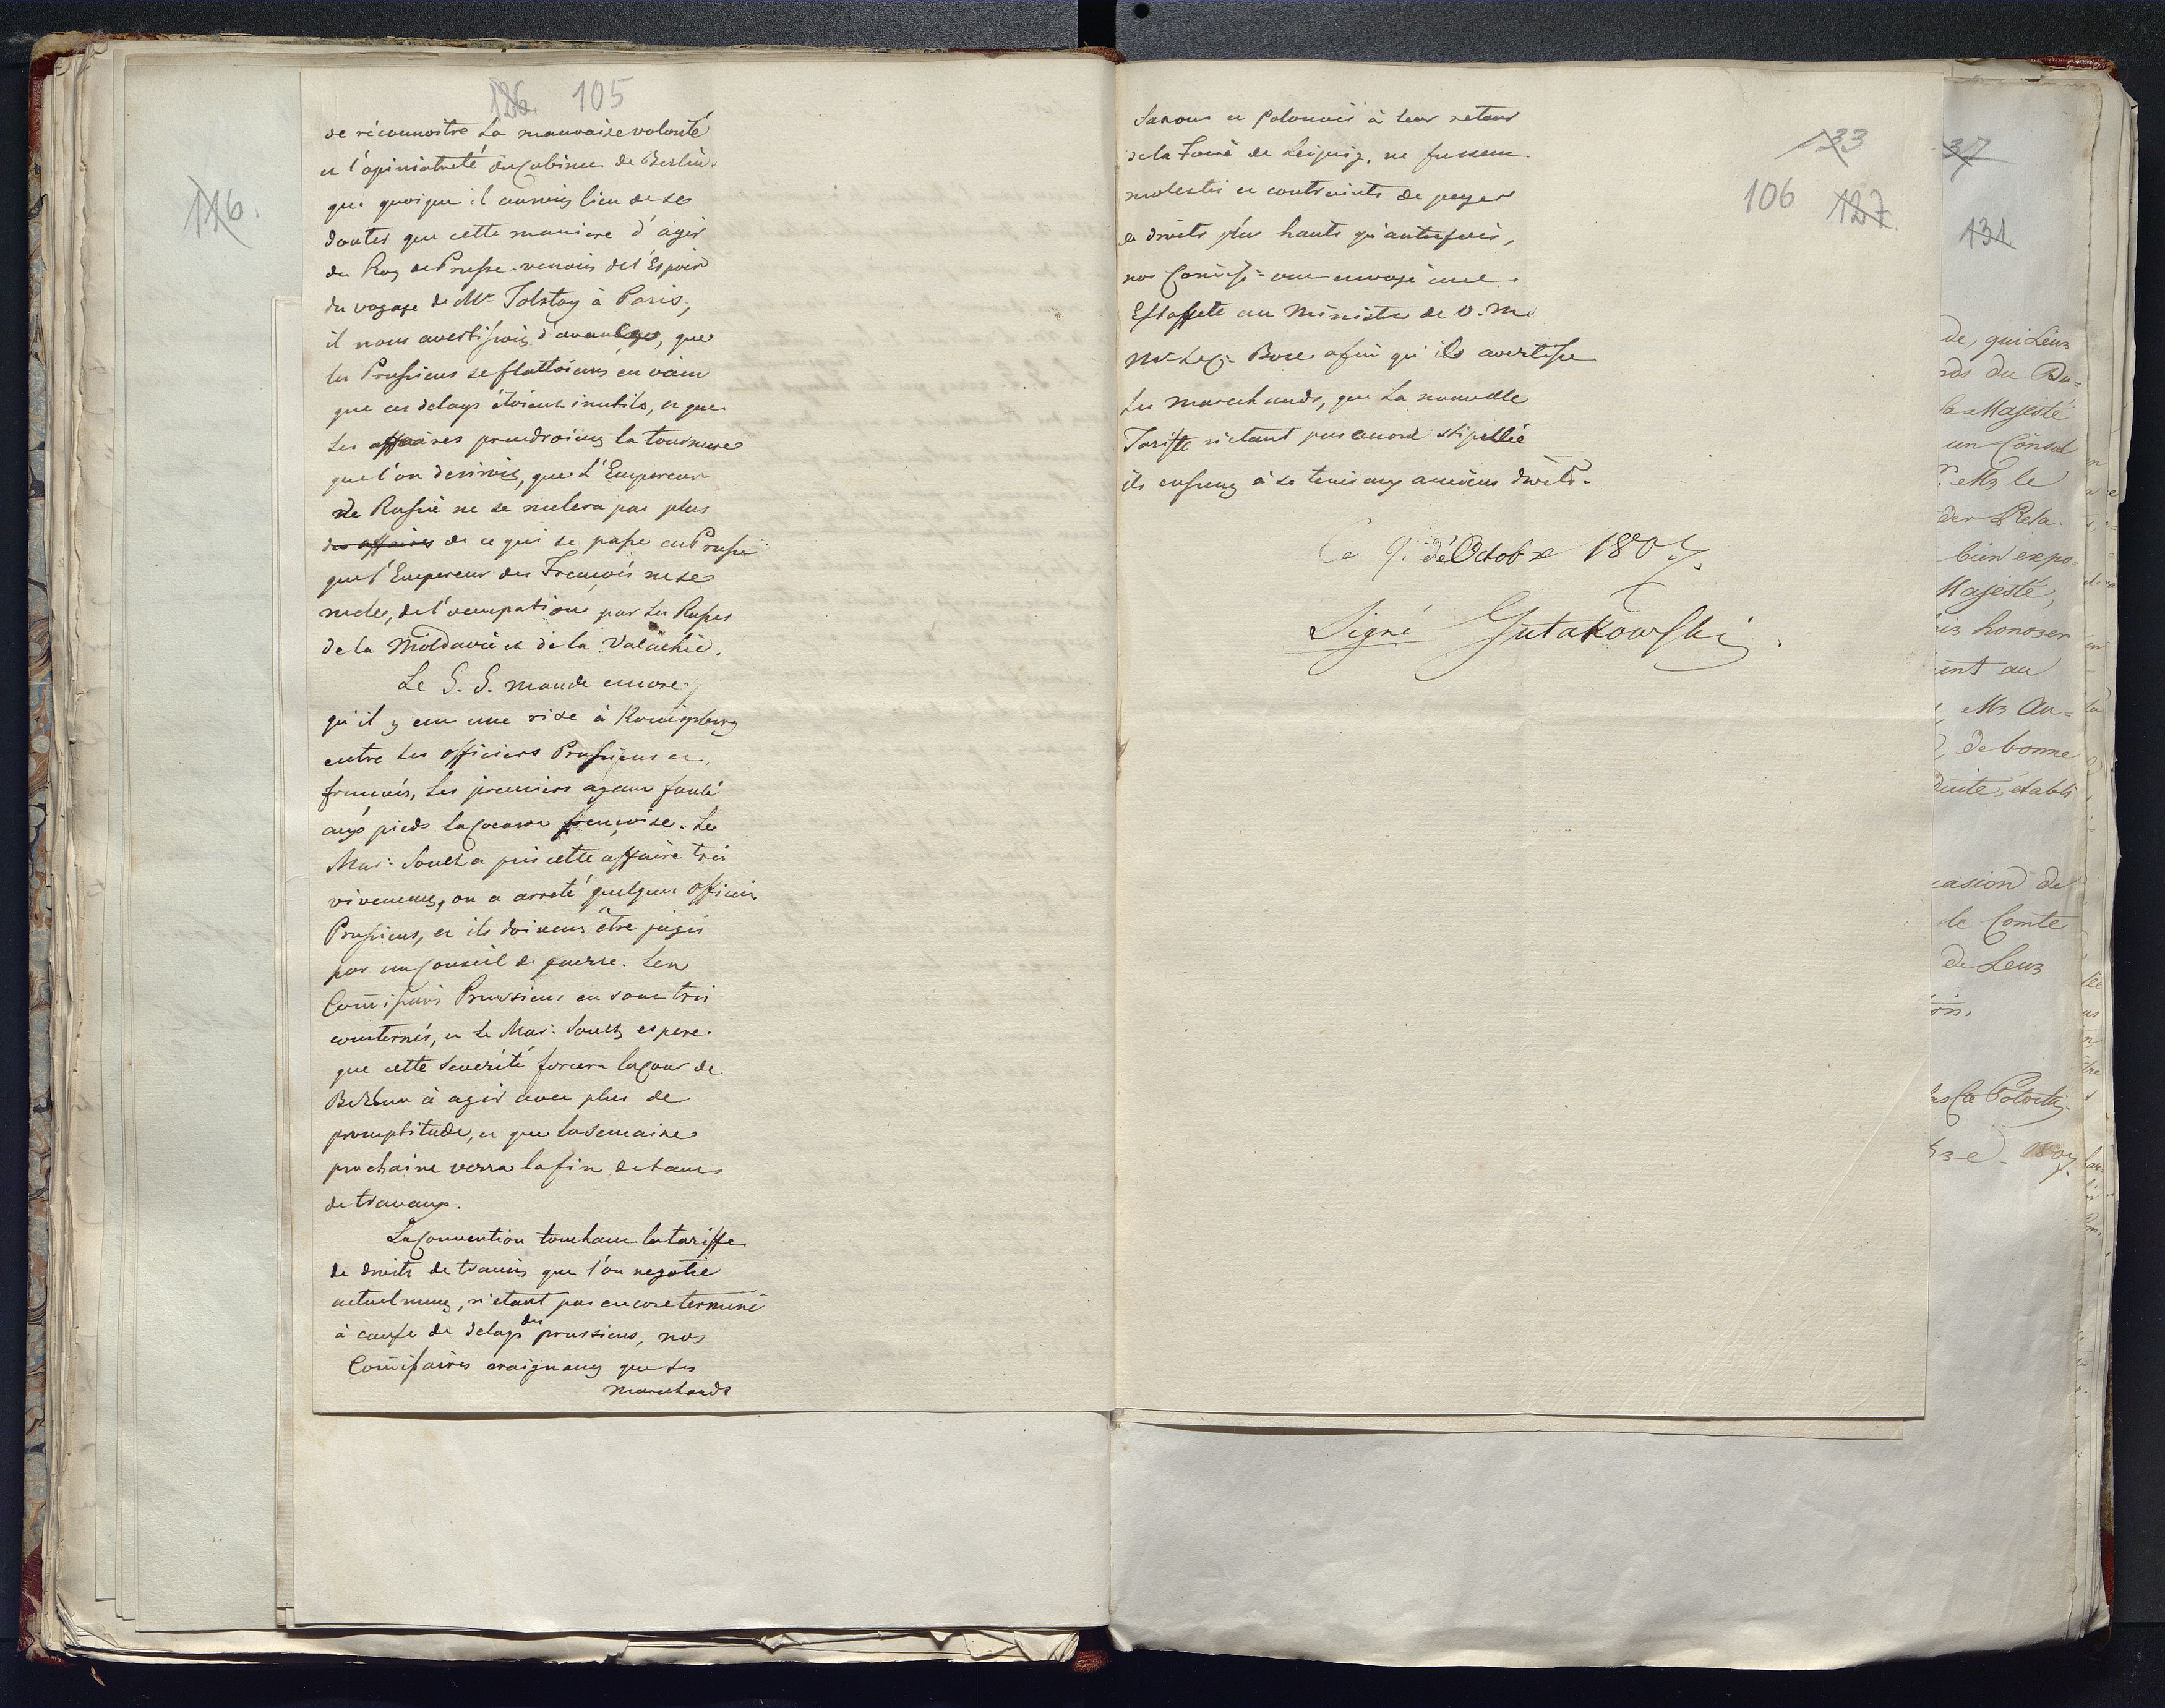 126. 105
de réconnoitre la mauvaise volonté
et l'opiniatreté du Cabinet de Berlin.
que quoique il auroit lieu de se
douter que cette maniere d'agir
du Roy de Prusse venoit de l'Espoir
du voyage de Mr Tolstoy à Paris,
il nous avertissoit d'avantage, que
les Prussiens se flattoient en vain
que ces delays étoient inutils, et que
les affaires prendroient la tournure
que l'on desiroit, que L'Empereur
de Russie ne se melera pas plus
des affaires de ce qui se passe en Prusse
que l'Empereur des François ne se
mele, de l'occupation par les Russes
de la Moldavie et de la Valachie.
Le G. G. mande encore
qu'il y eut une rixe à Konigsberg
entre les officiers Prussiens et
françois, les premiers ayant foulé
aux pieds la Cocarde françoise. Le
Mar: Soult a pris cette affaire très
vivement, on a arreté quelques officiers
Prussiens, et ils doivent être jugés
par un Conseil de guerre. Les
Com̃issaires Prussiens en sont très
consternés, et le Mar: Soult espere
que cette severité forcera la Cour de
Berlin à agir avec plus de
promptitude, et que la semaine
prochaine verra la fin de tant
de travaux.
La Convention touchant la tariffe
de droits de transit que l'on negotie
actuelment, n'etant pas encore terminé
à cause de delays des prussiens, nos
Com̃issaires craignant que les
marchands
133
106 127.
Saxons et Polonois à leur retour
de la Foire de Leipzig, ne fussent
molestés et contraints de payer
des droits plus hauts qu'autrefois,
nos Com̃iss: ont envoyé une
Estaffete au Ministre de V. M.
Mr le C: Bose afin qu'ils avertisse
les marchands, que la nouvelle
Tariffe n'etant pas encore stipulée
ils eussent à se tenir aux anciens droits.
Ce 9. d'Octobre 1807.
Signé Gutakowski.
116.
37
131
de, qui Leur
rds du Du=
la Majesté
un Consul
Mr le
der Rela.
bien expo=
Majesté,
honorer
ent au
Mr Au=
de bonne
duite, établi
casion de
le Comte
de Leur
Cte Potocki.
1807.